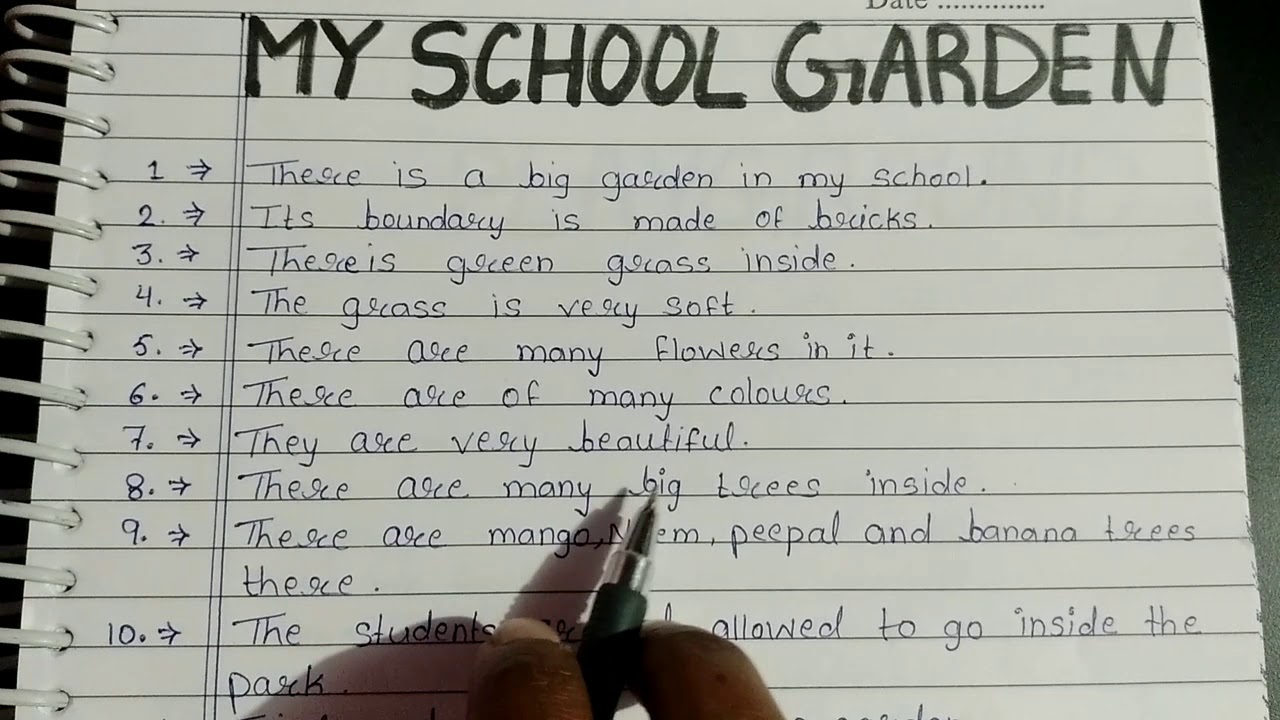 Date ..............
MY SCHOOL GARDEN
1 ⇒ There is a big garden in my school.
2. ⇒ Its boundary is made of bricks.
3. ⇒ There is green grass inside.
4. ⇒ The grass is very soft.
5. ⇒ There are many flowers in it.
6. ⇒ There are of many colours.
7. ⇒ They are very beautiful.
8. ⇒ There are many big trees inside.
9. ⇒ There are mango, peepal and banana trees
there.
10. ⇒ The students allowed to go inside the
park.